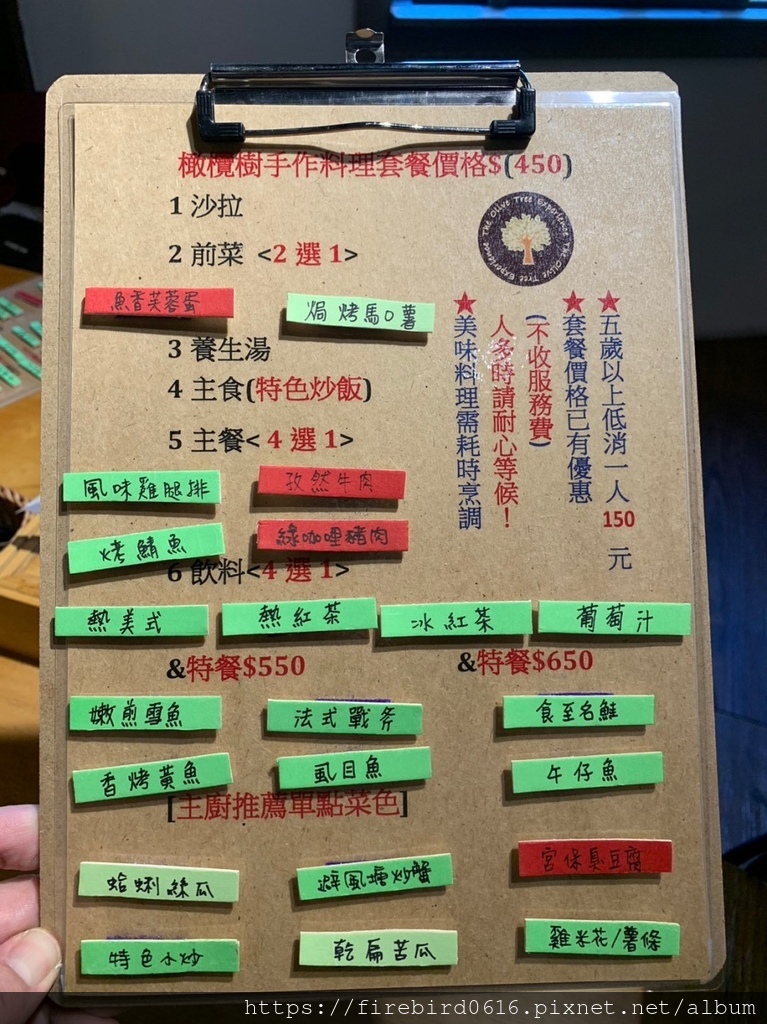 橄欖樹手作料理套餐價格$(450)
1 沙拉
2 前菜 <2 選 1>
魚香芙蓉蛋
焗烤馬O薯
3 養生湯
4 主食(特色炒飯)
5 主餐< 4 選 1>
風味雞腿排
孜然牛肉
烤鯖魚
綠咖哩豬肉
6 飲料<4 選 1>
熱美式
熱紅茶
冰紅茶
葡萄汁
The Olive Tree Experience The Olive Tree Experience
★五歲以上低消一人 150 元
★套餐價格已有優惠
(不收服務費)
人多時請耐心等候！
★美味料理需耗時烹調
&特餐$550
&特餐$650
嫩煎雪魚
法式戰斧
食至名鮭
香烤黃魚
虱目魚
午仔魚
[主廚推薦單點菜色]
宮保臭豆腐
蛤蜊絲瓜
避風塘炒蟹
特色小炒
乾扁苦瓜
雞米花/薯條
https://firebird0616.pixnet.net/album